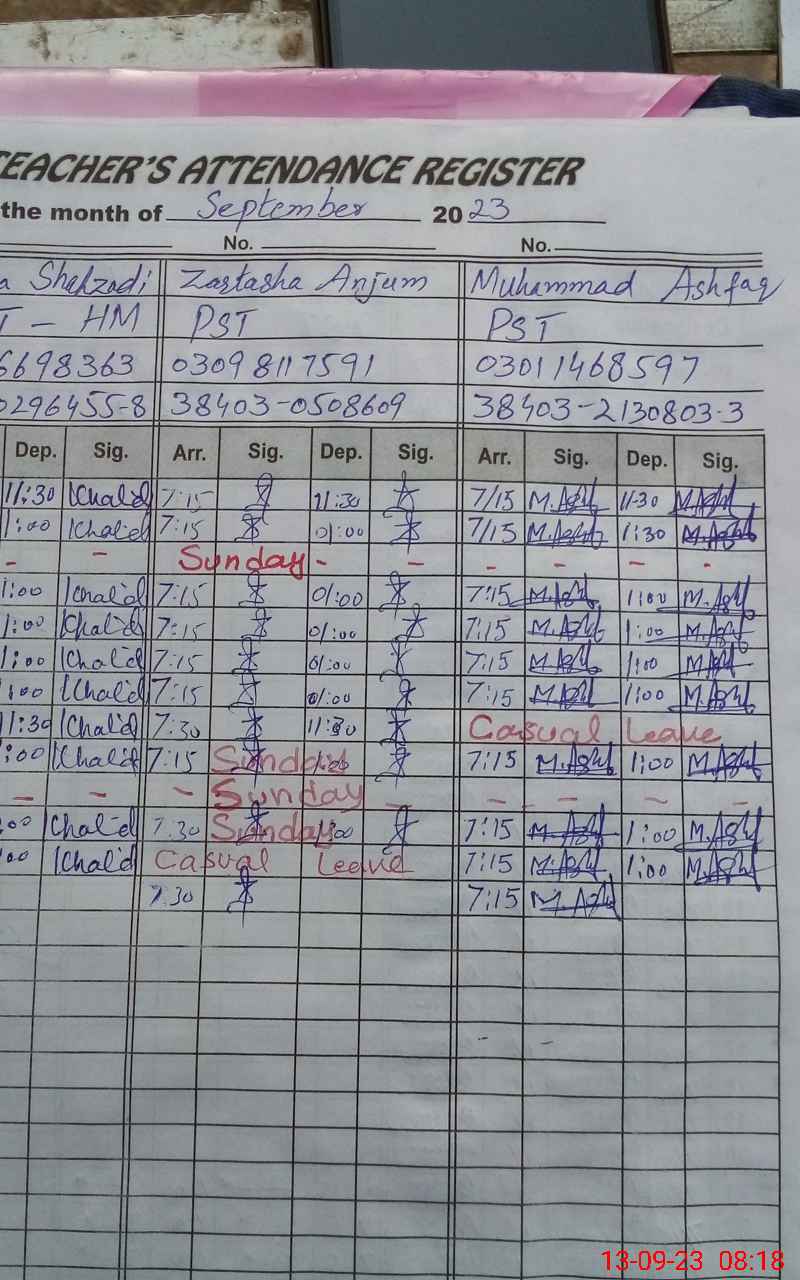 TEACHER'S ATTENDANCE REGISTER
the month of September 2023
No. No.
a Shehzadi Zartasha Anjum Muhammad Ashfaq
T - HM PST PST
6698363 03098117591 03011468597
0296455-8 38403-0508609 38403-2130803-3
Dep. Sig. Arr. Sig. Dep. Sig. Arr. Sig. Dep. Sig.
11:30 Khalid 7:15 11:30 7/15 M.Ashf 11-30 M.Ashf
1:00 Khalid 7:15 01:00 7/15 M.Ashf 1:30 M.Ashf
- - Sunday - - - - - -
1:00 Khalid 7:15 01:00 7:15 M.Ashf 1:00 M.Ashf
1:00 Khalid 7:15 01:00 7:15 M.Ashf 1:00 M.Ashf
1:00 Khalid 7:15 01:00 7:15 M.Ashf 1:00 M.Ashf
1:00 Khalid 7:15 01:00 7:15 M.Ashf 1:00 M.Ashf
11:30 Khalid 7:30 11:30 Casual Leave
1:00 Khalid 7:15 7:15 M.Ashf 1:00 M.Ashf
- - - Sunday - - - - -
00 Khalid 7:30 Sunday 7:15 M.Ashf 1:00 M.Ashf
00 Khalid Casual Leave 7:15 M.Ashf 1:00 M.Ashf
7:30 7:15 M.Ashf
13-09-23 08:18